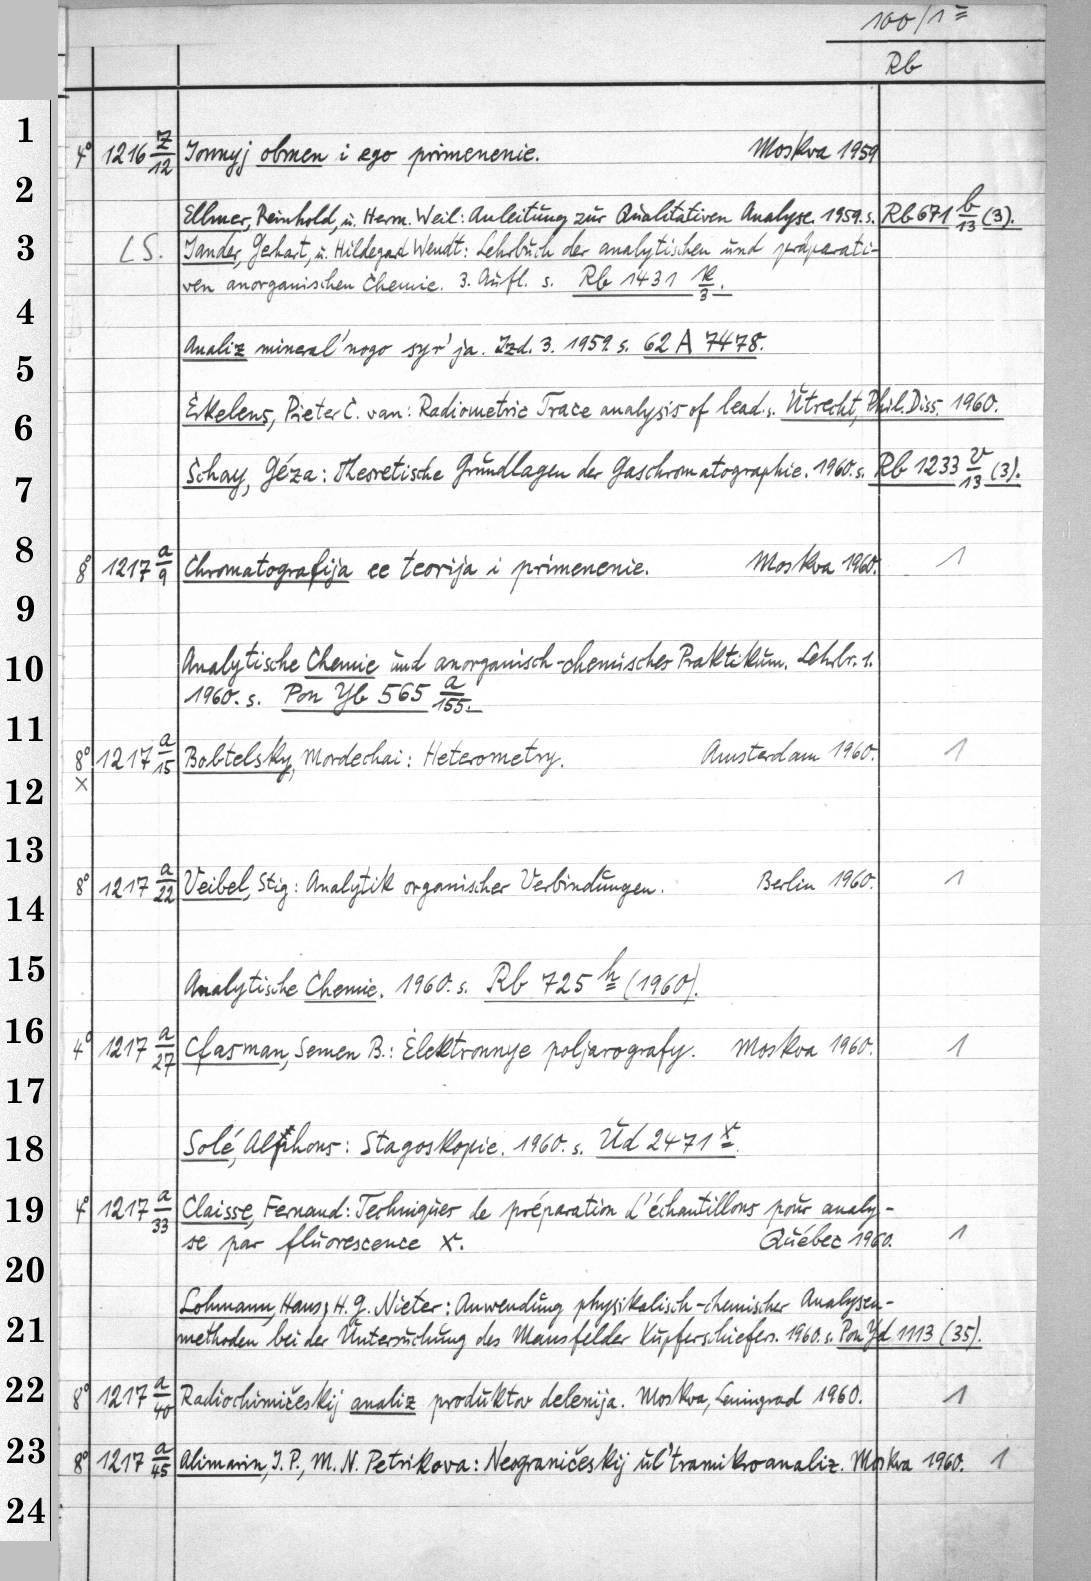 100/1
Rb
1
4° 1216 Z/12 Ionnyj obmen i ego primenenie. Moskva 1959
2
Ellmer, Reinhold, u. Herm. Weil: Anleitung zur Qualitativen Analyse. 1959. s. Rb 671 b/13 (3).
3
LS. Jander, Gerhart, u. Hildegard Wendt: Lehrbuch der analytischen und präparati-
ven anorganischen Chemie. 3. Aufl. s. Rb 1431 k/3.
4
Analiz mineral'nogo syr'ja. Izd. 3. 1959. s. 62 A 7478.
5
Erkelens, Pieter C. van: Radiometric Trace analysis of lead. s. Utrecht, Phil. Diss. 1960.
6
Schay, Géza: Theoretische Grundlagen der Gaschromatographie. 1960. s. Rb 1233 v/13 (3).
7
8
8° 1217 a/9 Chromatografija ee teorija i primenenie. Moskva 1960. 1
9
Analytische Chemie und anorganisch-chemisches Praktikum. Lehrbr. 1.
10
1960. s. Pon Yb 565 a/155.
11
8° 1217 a/15 Bobtelsky, Mordechai: Heterometry. Amsterdam 1960. 1
x
12
13
8° 1217 a/22 Veibel, Stig: Analytik organischer Verbindungen. Berlin 1960. 1
14
15
Analytische Chemie. 1960. s. Rb 725 h (1960).
16
4° 1217 a/27 Cfasman, Semen B.: Elektronnye poljarografy. Moskva 1960. 1
17
18
Solé, Alfhons: Stagoskopie. 1960. s. Ud 2471 x.
19
4° 1217 a/33 Claisse, Fernand: Techniques de préparation d'échantillons pour analy-
se par fluorescence x. Québec 1960. 1
20
Lohmann, Hans, H. G. Nieter: Anwendung physikalisch-chemischer Analysen-
21
methoden bei der Untersuchung des Mansfelder Kupferschiefers. 1960. s. Pon Yd 1113 (35).
22
8° 1217 a/40 Radiochimičeskij analiz produktov delenija. Moskva, Leningrad 1960. 1
23
8° 1217 a/45 Alimarin, I. P., M. N. Petrikova: Neograničeskij ul'tramikroanaliz. Moskva 1960. 1
24